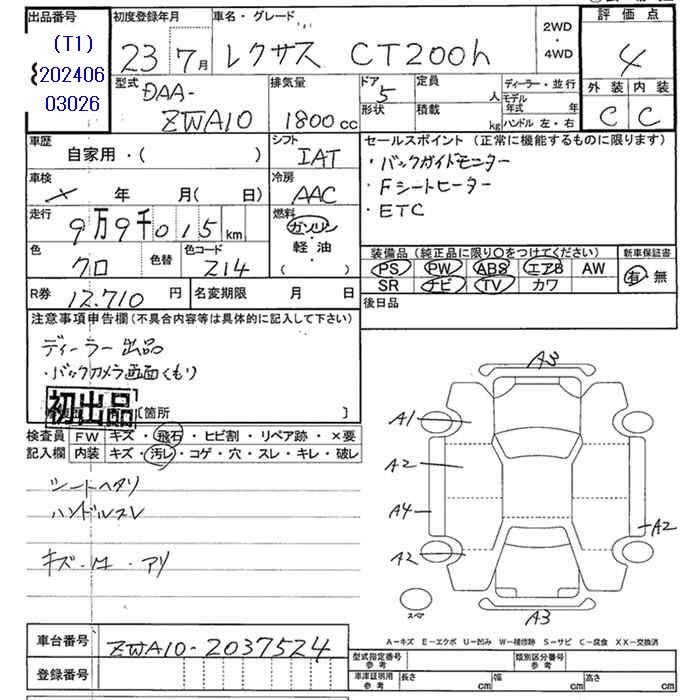 出品番号
(T1)
202406
03026
初度登録年月
23 7月
車名・グレード
レクサス CT200h
2WD
・
4WD
評価点
4
外装 内装
C C
型式 DAA-
ZWA10
排気量
1800cc
ドア 5
形状
定員 人
積載 kg
ディーラー・並行
モデル年式 年
ハンドル 左・右
車歴
自家用・( )
シフト
IAT
セールスポイント (正常に機能するものに限ります)
・バックガイドモニター
・Fシートヒーター
・ETC
車検
× 年 月( 日)
冷房
AAC
走行
9万9千015km
燃料
ガソリン
軽・油
( )
色
クロ
色替
色コード
214
装備品(純正品に限り○をつけてください)
PS PW ABS エアB AW
SR ナビ TV カワ
新車保証書
有 無
R券 12.710 円
名変期限 月 日
後日品
注意事項申告欄(不具合内容等は具体的に記入して下さい)
ディーラー出品
・バックカメラ画面くもり
初出品
[箇所 ]
検査員 FW キズ・飛石・ヒビ割・リペア跡・×要
記入欄 内装 キズ・汚レ・コゲ・穴・スレ・キレ・破レ
シートヘタリ
ハンドルスレ
A3
A1
A2
A4
A2
A2
A3
スペア
A−キズ E−エクボ U−凹み W−補修跡 S−サビ C−腐食 XX−交換済
車台番号 ZWA10-2037524
登録番号
型式指定番号 参考
類別区分番号 参考
車庫証明用 参考
長さ cm 幅 cm 高さ cm